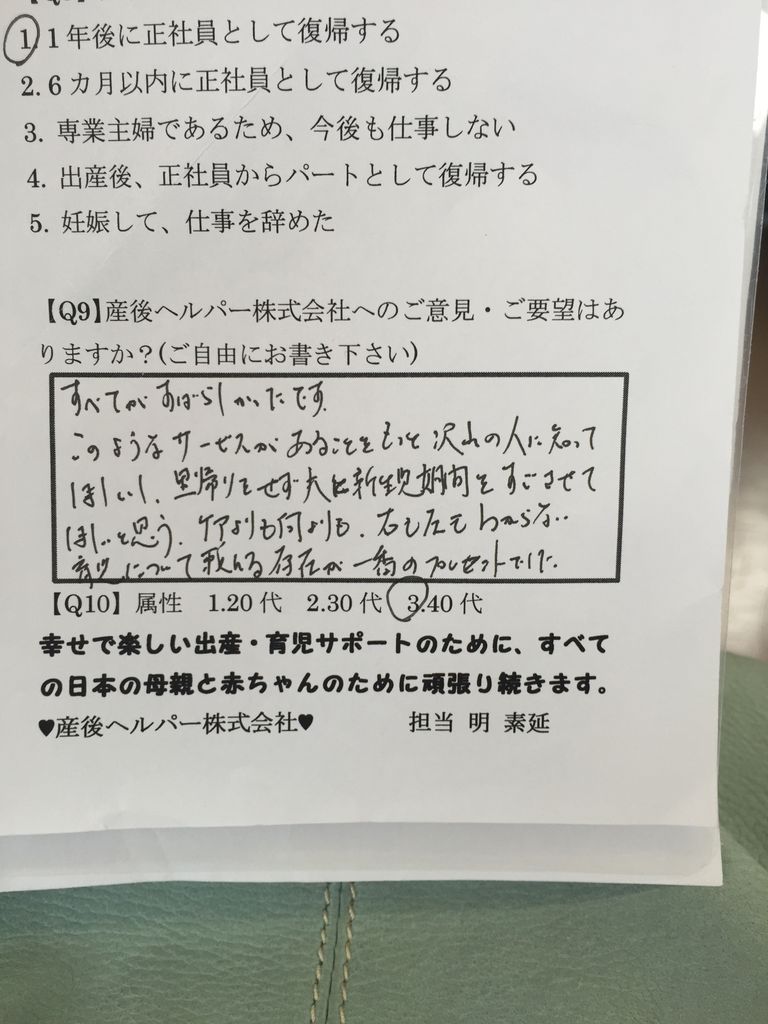 1. 1年後に正社員として復帰する
2. 6カ月以内に正社員として復帰する
3. 専業主婦であるため、今後も仕事しない
4. 出産後、正社員からパートとして復帰する
5. 妊娠して、仕事を辞めた
【Q9】産後ヘルパー株式会社へのご意見・ご要望はあ
りますか？(ご自由にお書き下さい)
すべてがすばらしかったです。
このようなサービスがあることをもっと沢山の人に知って
ほしいし、里帰りをせず夫と新生児期間をすごさせて
ほしいと思う。ケアよりも何よりも、右も左もわからない
育児について教わる存在が一番のプレゼントでした。
【Q10】属性 1.20代 2.30代 3.40代
幸せで楽しい出産・育児サポートのために、すべて
の日本の母親と赤ちゃんのために頑張り続きます。
♥産後ヘルパー株式会社♥ 担当 明 素延